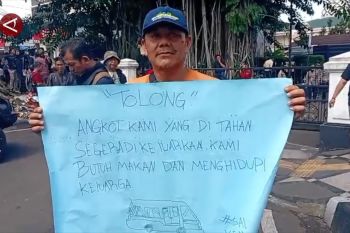 "TOLONG"
... ANGKOT KAMI YANG DI TAHAN
SEGERA DI KELUARKAN KAMI
BUTUH MAKAN DAN MENGHIDUPI
KELUARGA